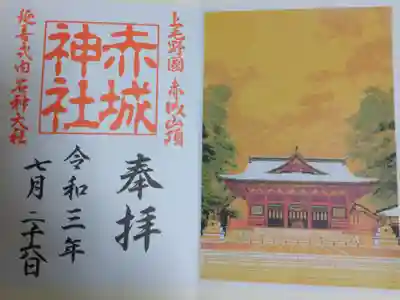 上毛野國 赤城山頂
赤城
神社
延喜式内 名神大社
奉拝
令和三年
七月二十六日